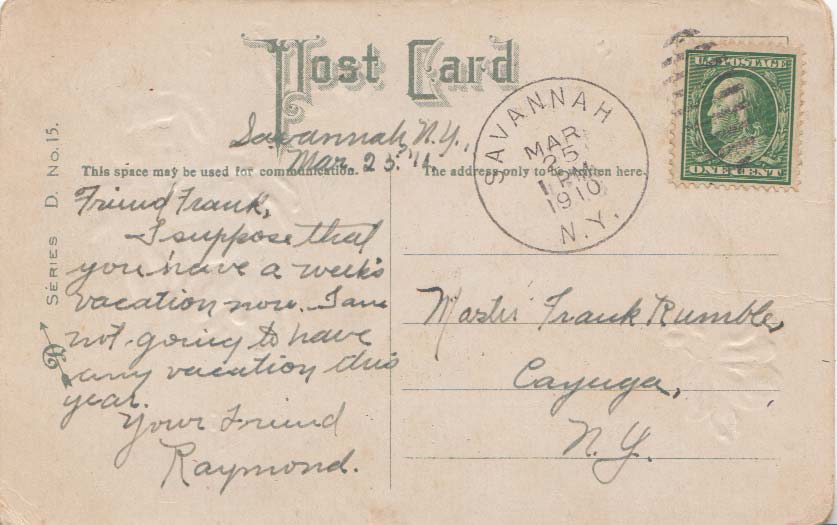 Post Card
Savannah, N.Y.,
Mar. 25.
This space may be used for communication.
The address only to be written here.
SERIES D. No. 15.
Friend Frank,
I suppose that
you have a week's
vacation now. I am
not going to have
any vacation this
year.
Your Friend
Raymond.
SAVANNAH
MAR
25
1 PM
1910
N.Y.
U.S. POSTAGE
ONE CENT
Master Frank Rumble,
Cayuga,
N.Y.